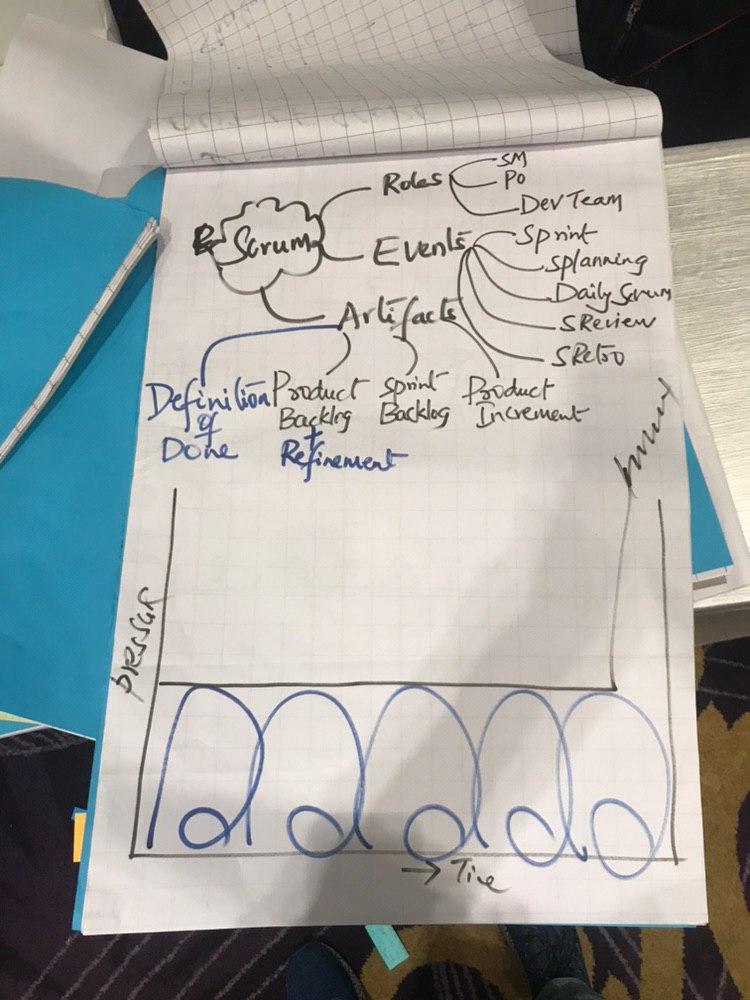 Scrum
Roles
SM
PO
Dev Team
Events
Sprint
Splanning
Daily Scrum
SReview
SRetro
Artifacts
Definition
of
Done
Product
Backlog
+
Refinement
Sprint
Backlog
Product
Increment
pressur
→ Time